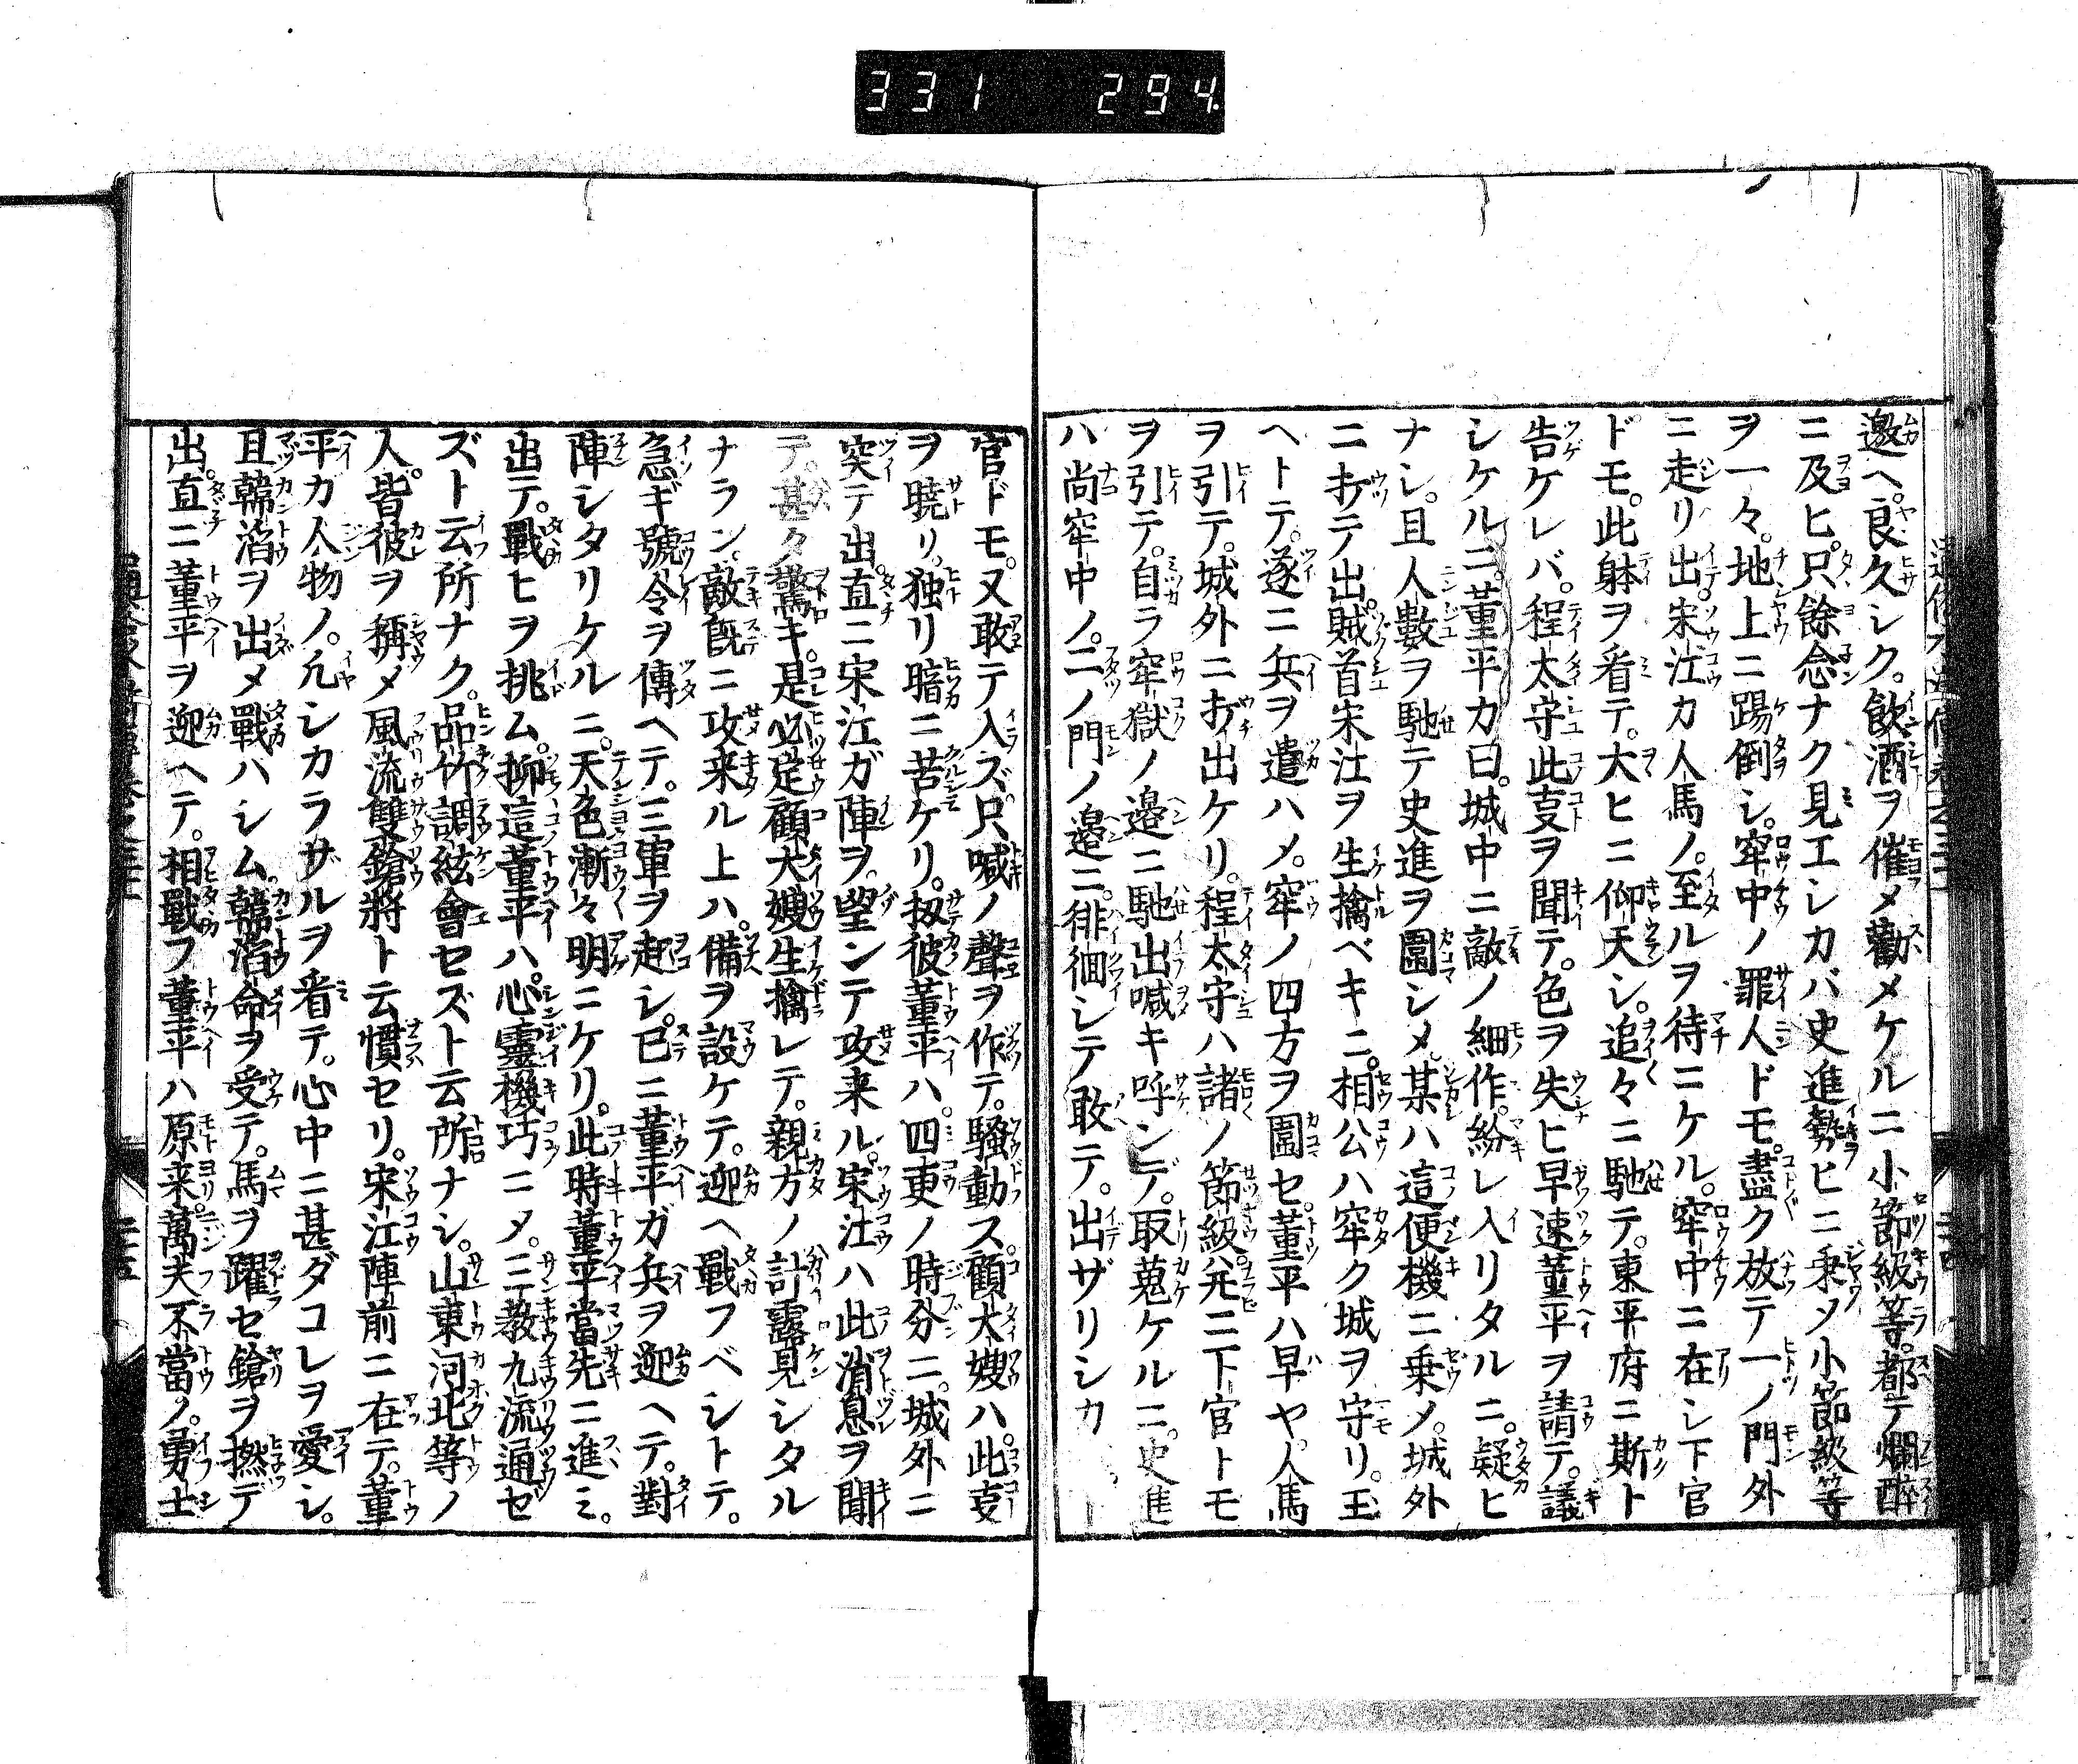 331 294
邀ヘ。良久シク。飲酒ヲ催メ勸メケルニ小節級等。都テ爛醉
ニ及ヒ。只餘念ナク見エシカバ史進勢ヒニ乗ソ小節級等
ヲ一々。地上ニ踢倒シ。窂中ノ罪人ドモ。盡ク放テ一ノ門外
ニ走リ出。宋江カ人馬ノ。至ルヲ待ニケル。窂中ニ在シ下官
ドモ。此躰ヲ看テ。大ヒニ仰天シ。追々ニ馳テ。東平府ニ斯ト
告ケレバ。程太守此叓ヲ聞テ。色ヲ失ヒ早速董平ヲ請テ。議
シケルニ。董平カ曰。城中ニ敵ノ細作。紛レ入リタルニ。疑ヒ
ナシ。且人數ヲ馳テ史進ヲ圍シメ。某ハ這便機ニ乗ソ。城外
ニ打テ出。賊首宋江ヲ生擒ベキニ。相公ハ窂ク城ヲ守リ玉
ヘトテ。遂ニ兵ヲ遣ハメ。窂ノ四方ヲ圍セ。董平ハ早ヤ人馬
ヲ引テ。城外ニ打出ケリ。程太守ハ諸ノ節級并ニ下官トモ
ヲ引テ。自ラ窂獄ノ邉ニ馳出喊キ呼ンデ。取蒐ケルニ。史進
ハ尚窂中ノ。二ノ門ノ邉ニ。徘徊シテ敢テ。出ザリシカ。
官ドモ。又敢テ入ズ。只喊ノ聲ヲ作テ。騒動ス。顧大嫂ハ此叓
ヲ暁リ。独リ暗ニ苦ケリ。扨彼董平ハ。四更ノ時分ニ。城外ニ
突テ出。直ニ宋江ガ陣ヲ。望ンテ攻来ル。宋江ハ此消息ヲ聞
テ。甚タ驚キ。是必定顧大嫂生擒レテ。親方ノ計露見シタル
ナラン。敵既ニ攻来ル上ハ。備ヲ設ケテ。迎ヘ戰フベシトテ。
急ギ號令ヲ傳ヘテ。三軍ヲ起シ。已ニ董平ガ兵ヲ迎ヘテ。對
陣シタリケルニ。天色漸々明ニケリ。此時董平當先ニ進ミ。
出テ。戰ヒヲ挑ム。抑這董平ハ。心靈機巧ニメ。三教九流通ゼ
ズト云所ナク。品竹調絃會セズト云所ナシ。山東河北等ノ
人。皆彼ヲ稱メ風流雙鎗將ト云慣セリ。宋江陣前ニ在テ。董
平カ人物ノ。凢シカラザルヲ看テ。心中ニ甚ダコレヲ愛シ。
且韓滔ヲ出メ戰ハシム。韓滔命ヲ受テ。馬ヲ躍セ鎗ヲ撚デ
出。直ニ董平ヲ迎ヘテ。相戰フ董平ハ原来。萬夫不當ノ。勇士